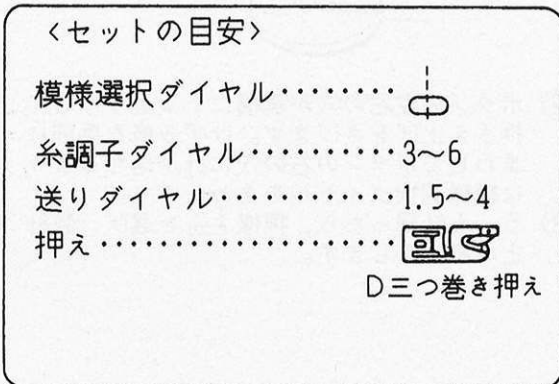 <セットの目安>
模様選択ダイヤル‥‥‥‥
糸調子ダイヤル‥‥‥‥‥3~6
送りダイヤル‥‥‥‥‥‥1.5~4
押え‥‥‥‥‥‥‥‥‥‥
D三つ巻き押え